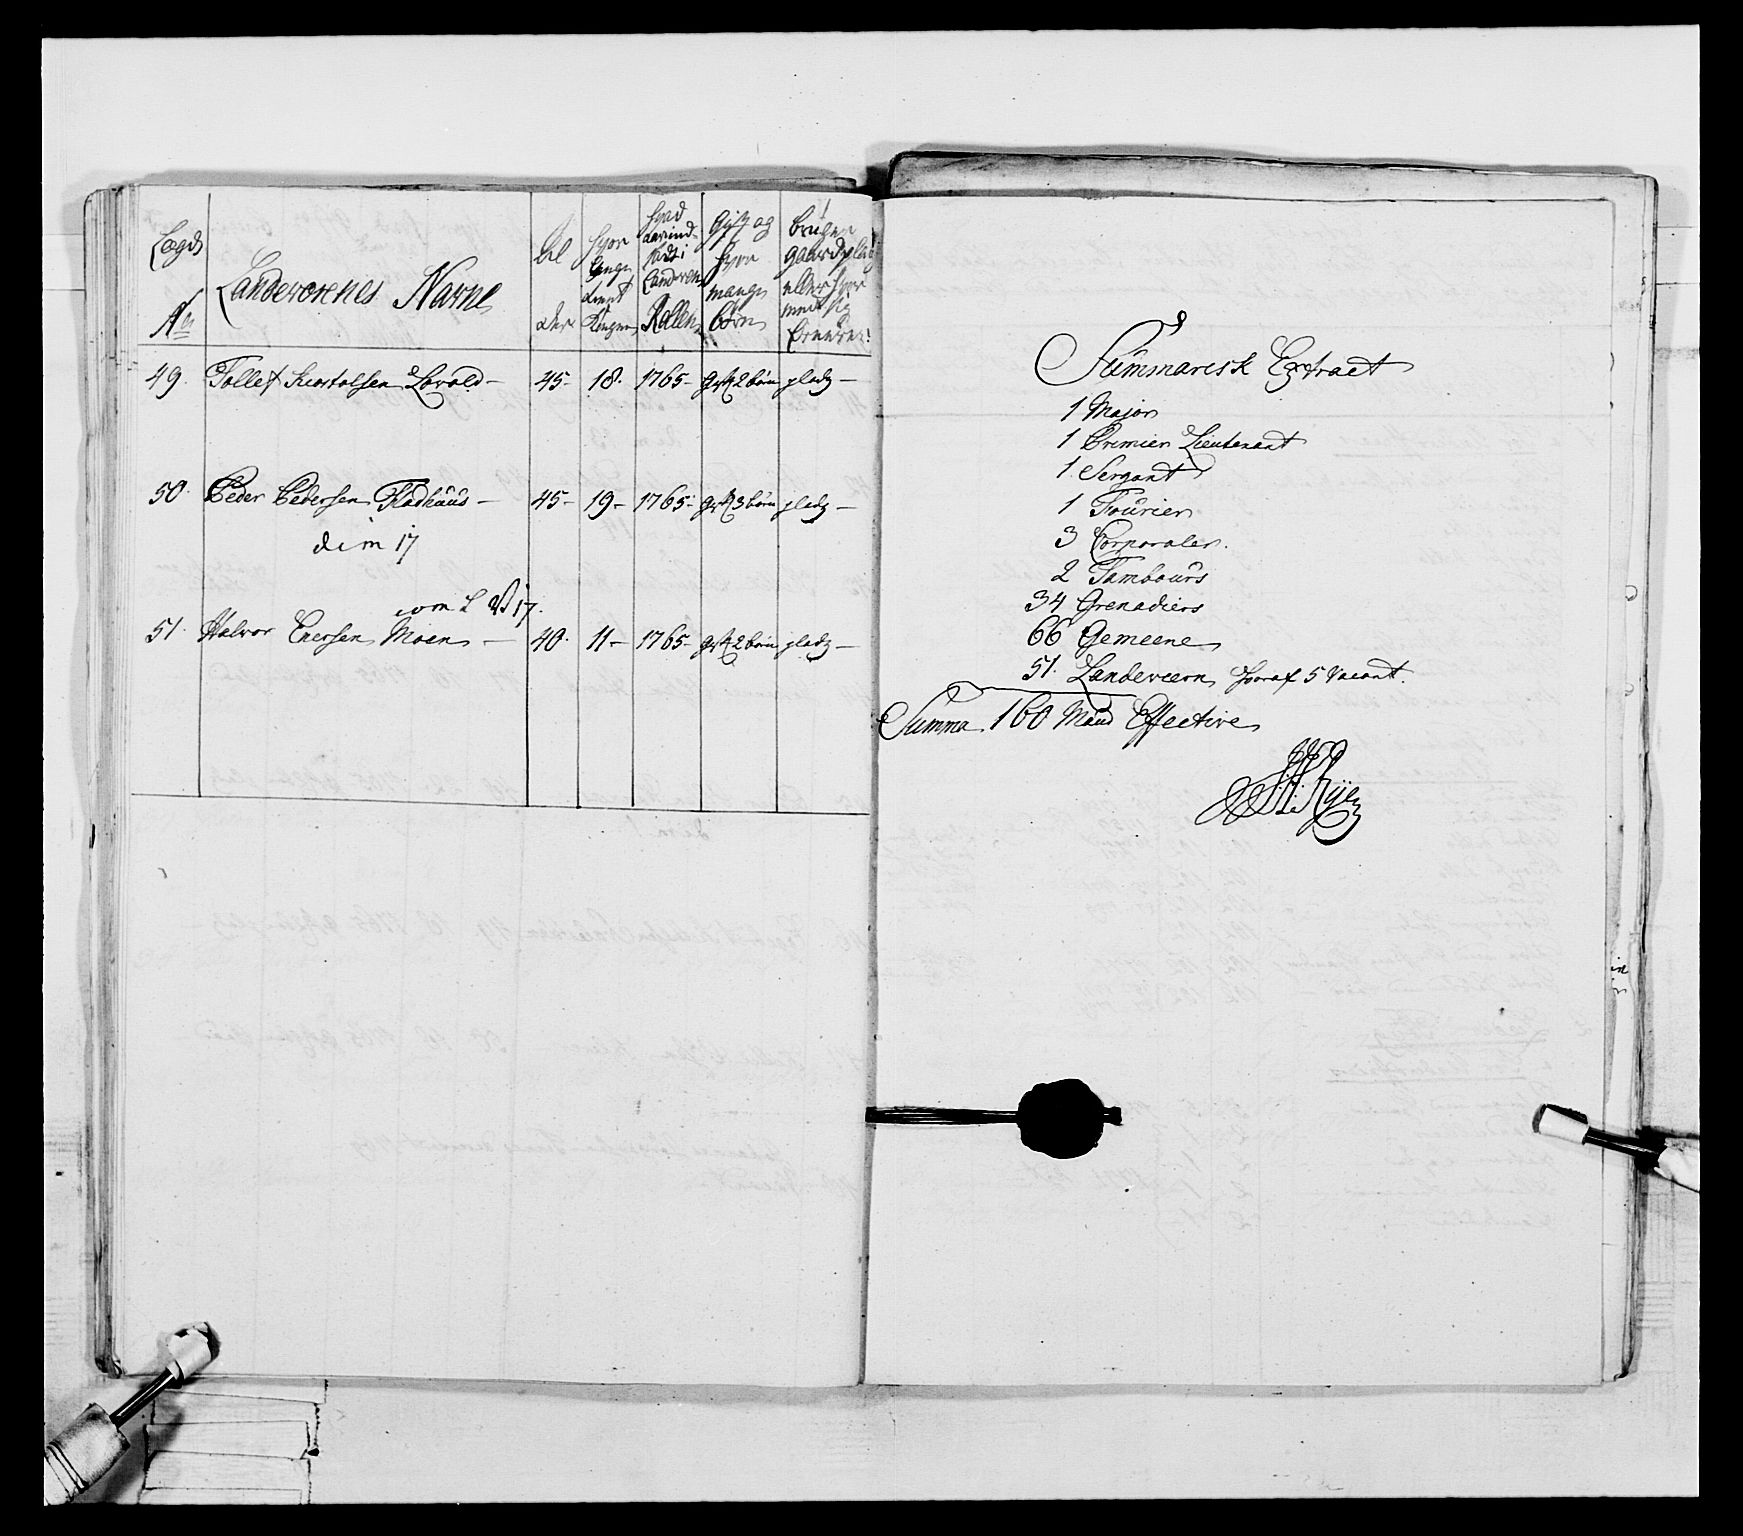 Lægds No
Landeværnes Navne
Al der
hvor længe tient Kongen
hvad Aar indsadt i Landværn Rollen
Gift og hvor mange børn
bruger gaard plads eller hvor med sig Ernærer
49. Tollef Kiostolsen Lovald - 45 - 18 - 1765 - gift 2 børn pladz -
50. Peder Pedersen Fladhuus - 45 - 19 - 1765 - gift 3 børn pladz -
dim 17
51. Halvor Enersen Moen - 40 - 11 - 1765 - gift 2 børn pladz -
Summarisk Extract
1 Major
1 Premier Lieutenant
1 Sergant
1 Fourier
3 Corporaler
2 Tambours
34 Grenadiers
66 Gemeene
51 Landeværn hvoraf 5 Vacant.
Summa 160 Mand Effective